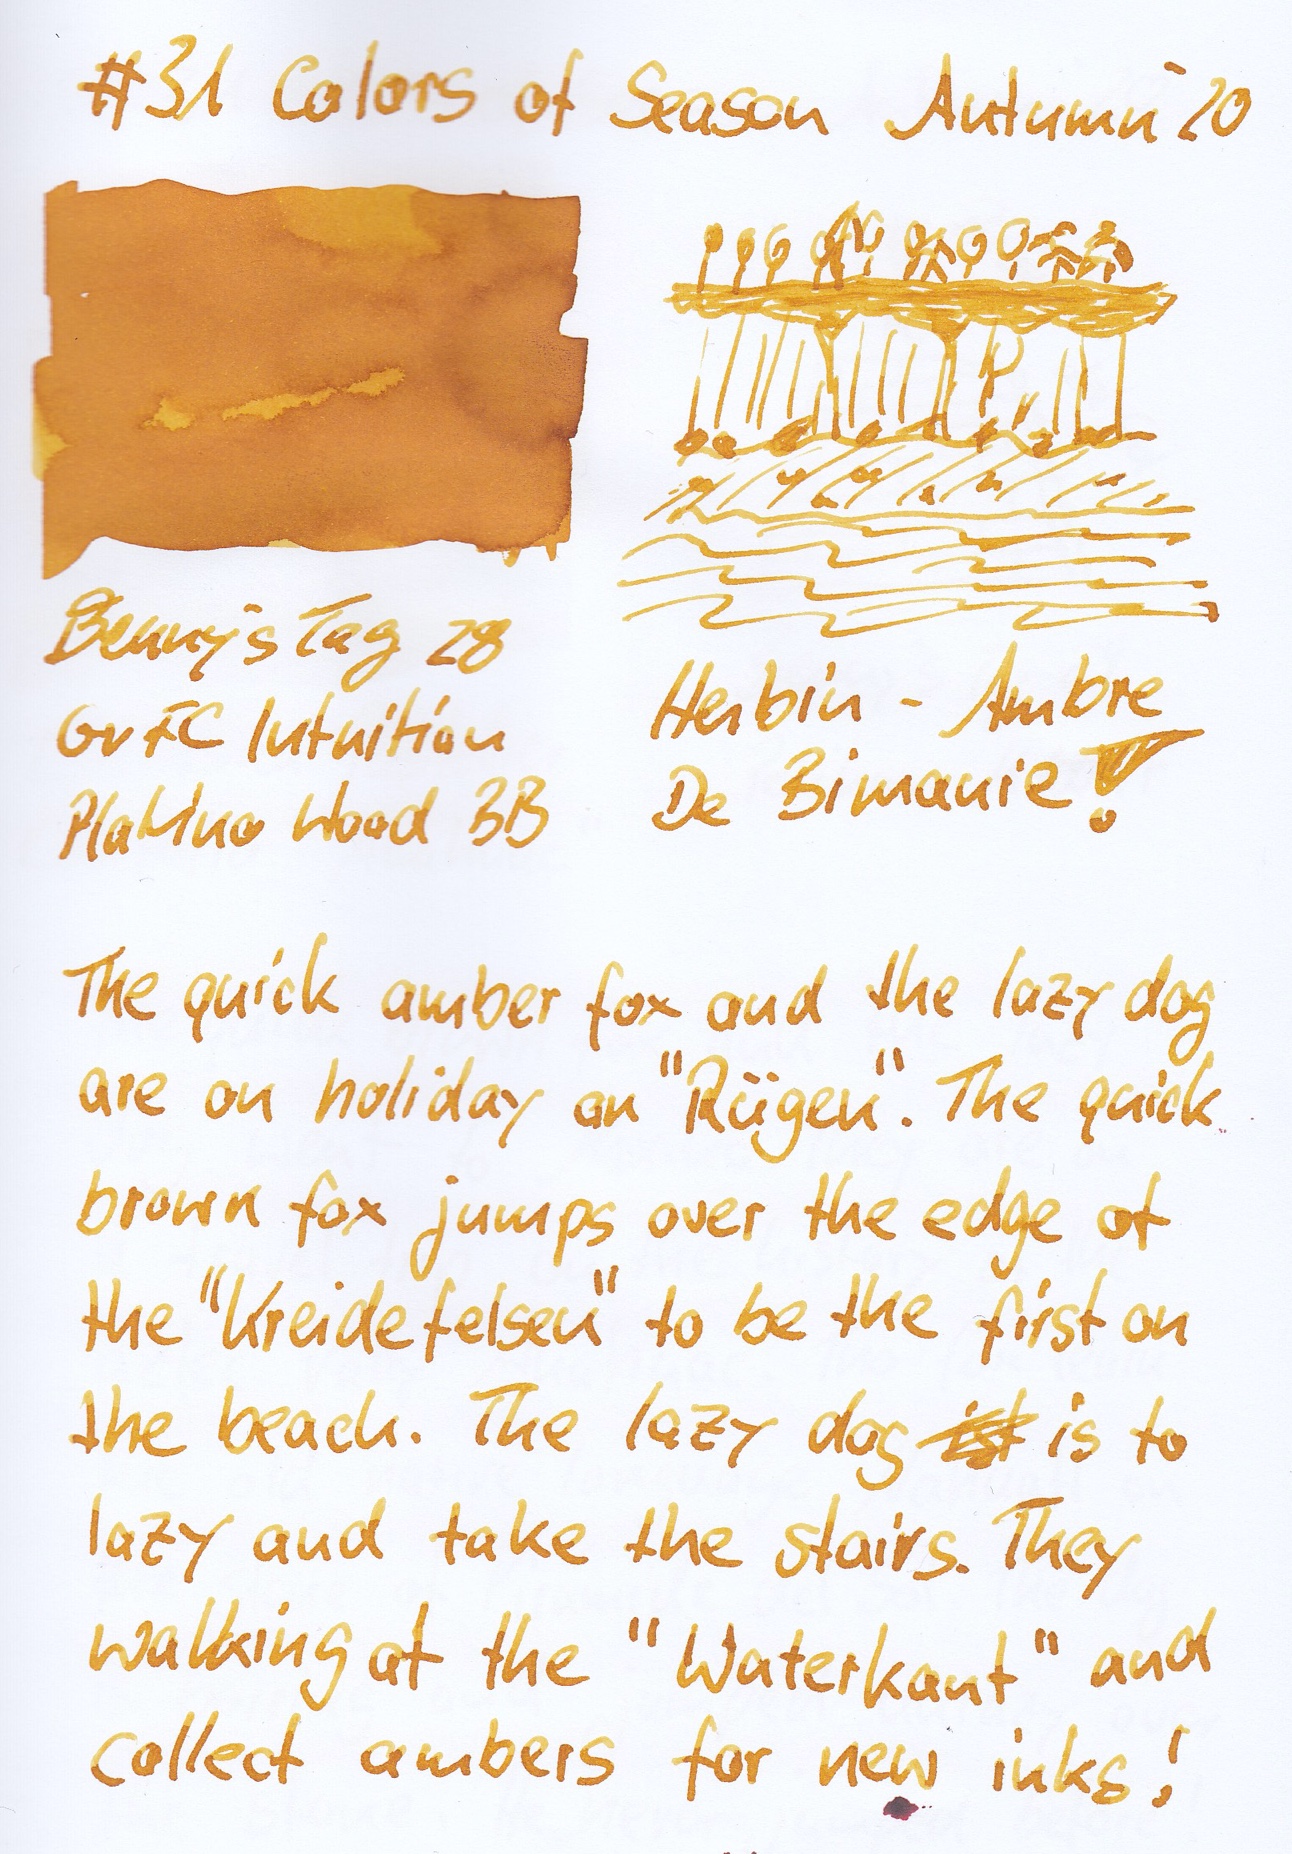 #31 Colors of Season Autumn '20
Benny's Tag 28
GvFC Intuition
Platino Wood BB
Herbin - Ambre
De Bimanie!
The quick amber fox and the lazy dog
are on holiday on "Rügen". The quick
brown fox jumps over the edge of
the "Kreidefelsen" to be the first on
the beach. The lazy dog is to
lazy and take the stairs. They
walking at the "Waterkant" and
collect ambers for new inks!